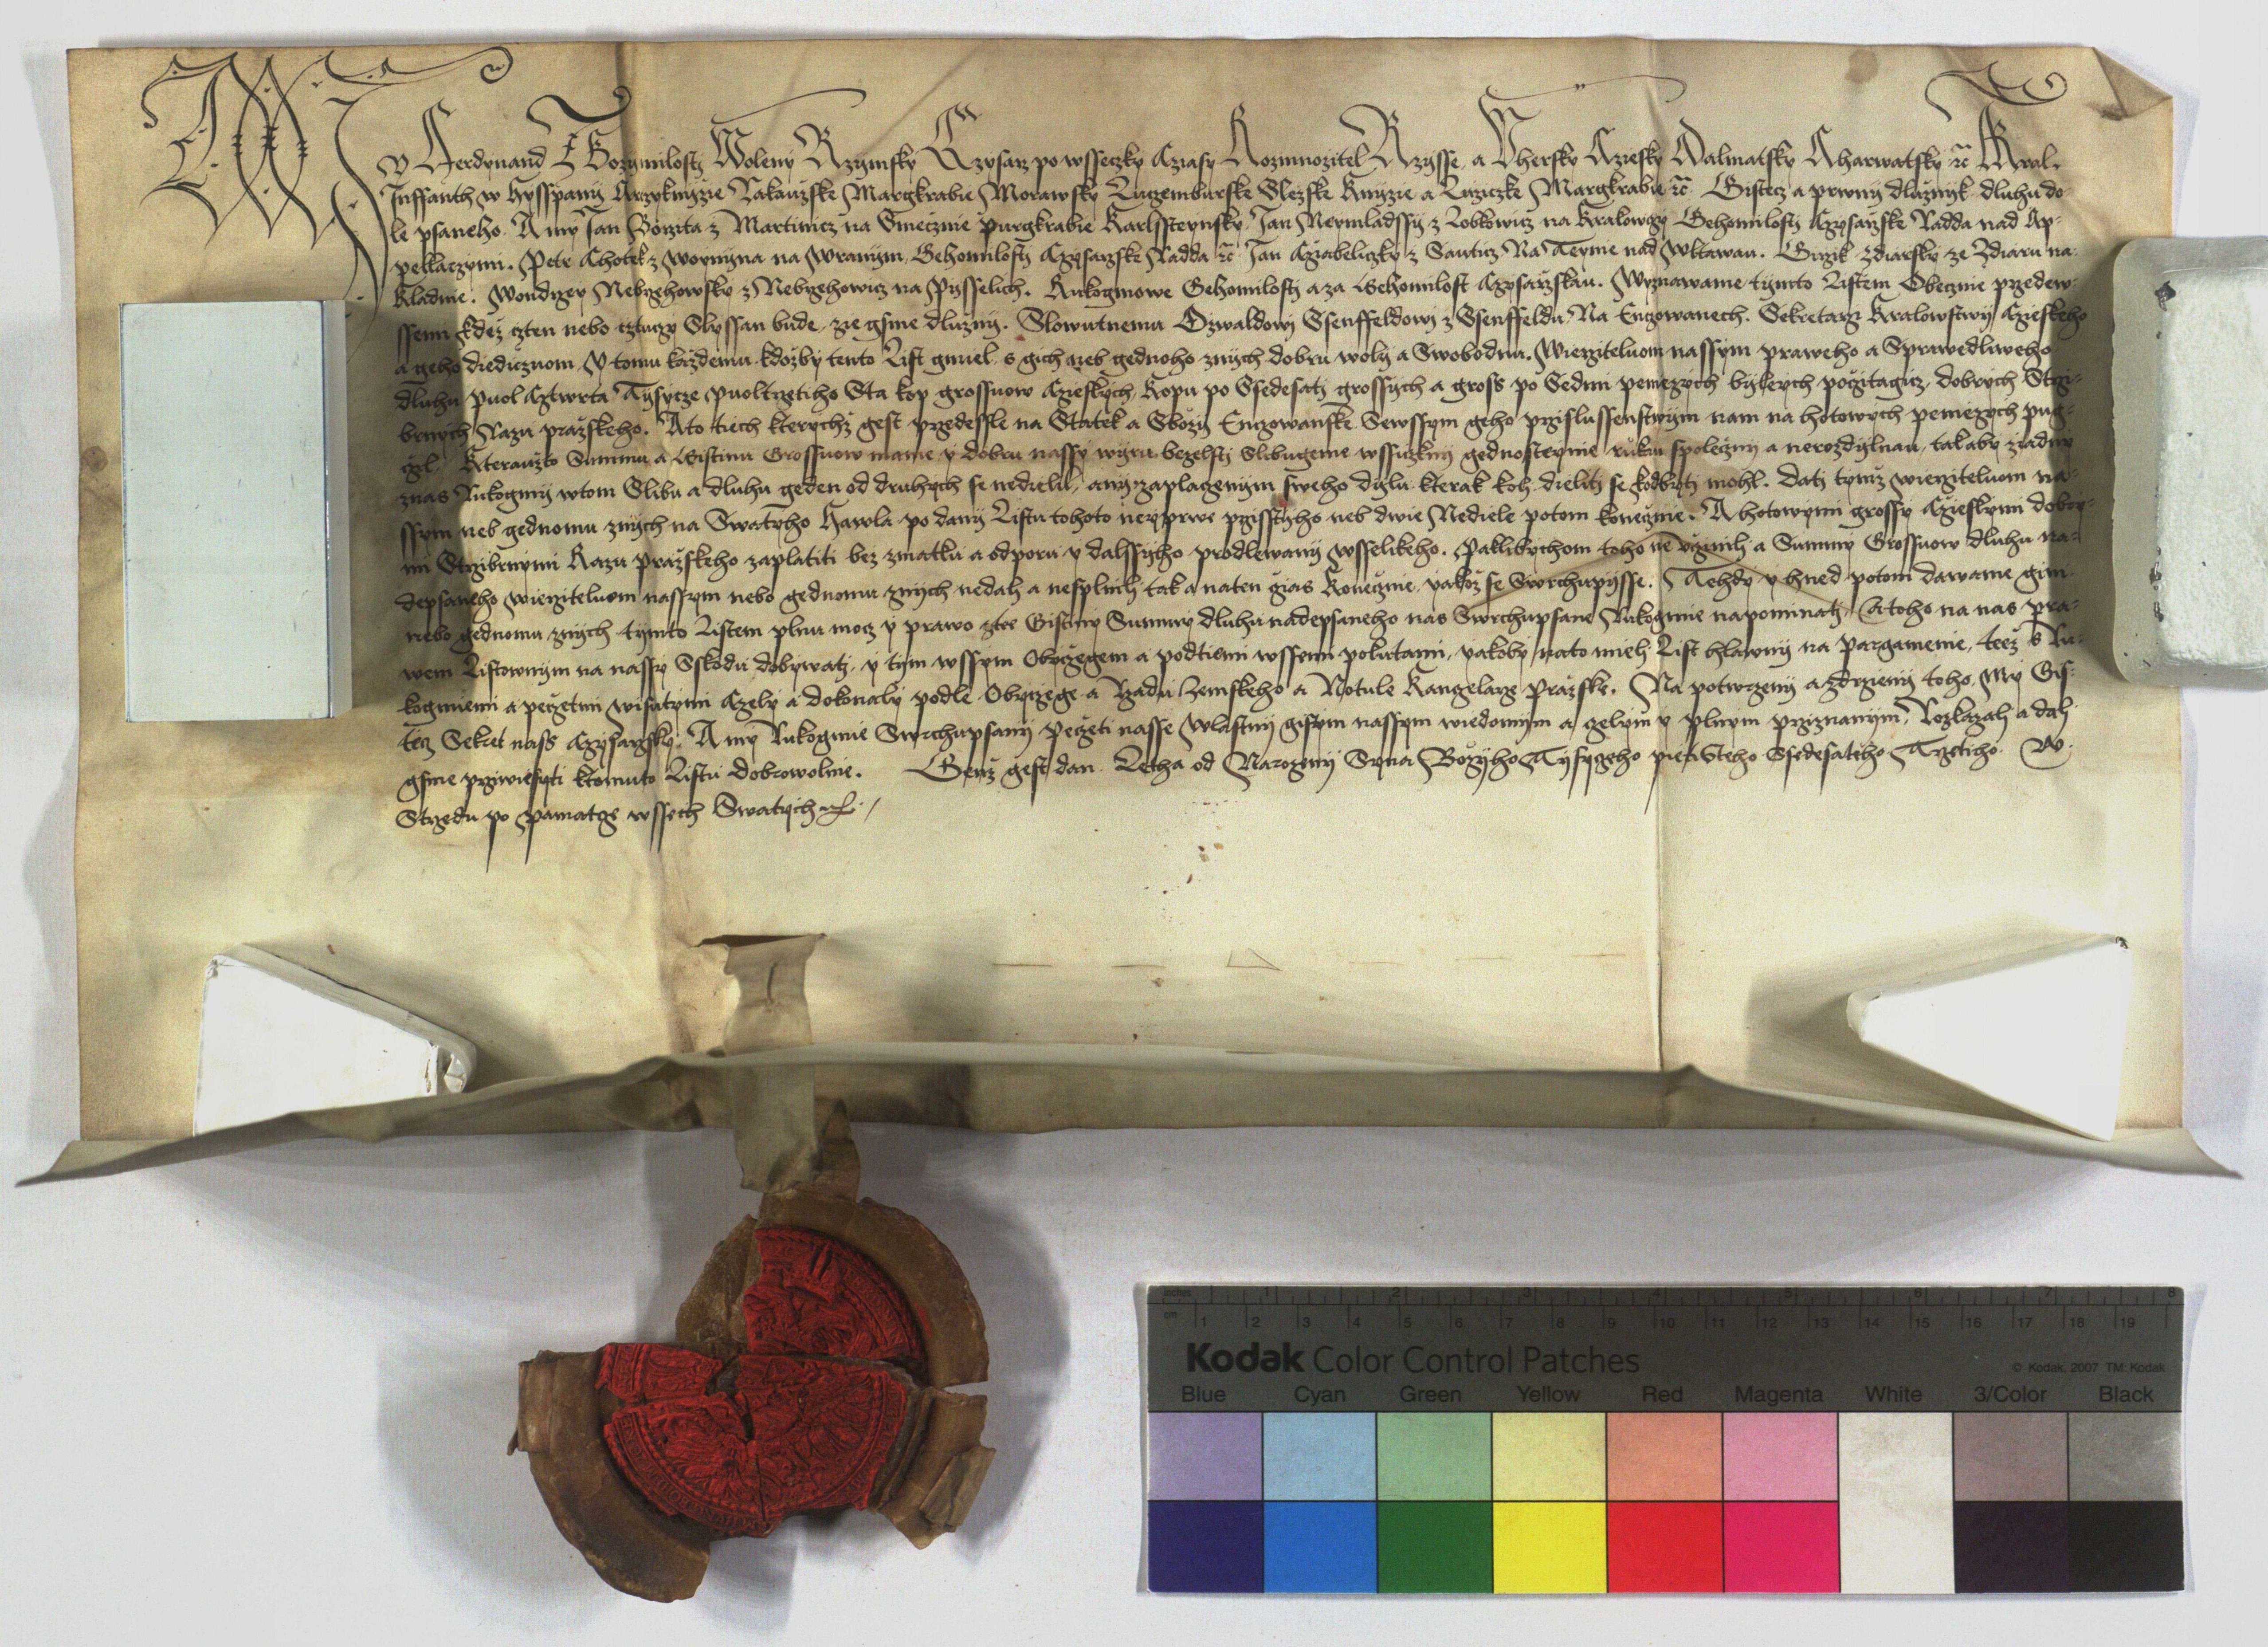 My Ferdynand Z Bozy milosti Woleny Rzymsky Czysarz po wsseczky Cziasy Rozmnozitel Rzysse, a Vhersky Cziesky Dalmatsky Charwatsky ꝛc̃ Kral.
Inffanth w Hysspanij Arczyknijzie Rakauzske Margkrabie Morawsky Luczemburske Slezske Knijzie a Luziczke Margkrabie ꝛc̃ Gistecz a prwnij dluznijk dluhu do-
le psaneho. A my Jan Borzita z Martinicz na Smecznie purgkrabie Karlssteynsky, Jan Neymladssij z Lobkowicz na Kralowczy Gehomilosti Czysarzske Radda nad Ap-
pellaczymi. Petr Chotek z Woynijna na Wranym, Gehomilosti Czysarzske Radda ꝛc̃ Jan Cziabeliczky z Sauticz Na Teyme nad Wltawau. Girzik Zdiarsky ze Zdiaru na
Kladnie. Wondrzey Nebrzehowsky z Nebrzehowicz na Pysselich. Rukogmowe Gehomilosti a za Gehomilost Czysarzskau. Wyznawame tijmto Listem Obecznie przedew-
ssemi kdez czten nebo cztuczy Slyssan bude, zie gsme dluzni. Slowutnemu Ozwaldowi Ssenffeldowi z Ssenffeldu, Na Enczowanech. Sekretarzi Kralowstwij Cziesheho
a geho diediczuom, Y tomu kazdemu kdozby tento List gmiel s gich neb gednoho znijch dobru woly a Swobodnu. Wierzitelom nassym praweho a Sprawedliweho
dluhu puol Cztwrta Tysycze puoltrzetiho Sta kop grossuow Czieskych, Kopu po Ssedesati grossijch a gross po Sedmi penezijch bijlych pocžitagicz, dobrych Strzi-
brnych Razu prazskeho. A to tiech kterychz gest przedessle na Statek a Sbozij Enczowanske Sewssym geho przislussenstwijm nam na hotowych peniezych pug-
cžil. Kterauzto Summu a Gistinu Grossuow mame y dobru nassy wijru bezelsti Slibugeme wssiczkni gednosteynie ruku spolecžni a nerozdijlnau, tak aby ziadny
znas Rukogmij wtom Slibu a dluhu geden od druhych se nedielil, any zaplacenym sweho dijlu kterak koli dieliti se kodbyti mohl. Dati tijmz wierzitelom na-
ssym neb gednomu znijch na Swateho Hawla po danij Listu tohoto neyprwe przisstijho neb dwie Nediele potom konecžnie. A hotowymi grossy Czieskymi dobry-
mi Strzibrnymi Razu Prazskeho zaplatiti bez zmatku a odporu y dalssijho prodlewanij wsselikeho. Paklibychom toho ne vcžinili a Summy Grossuow dluhu na-
depsaneho wierzitelom nassym nebo gednomu znijch nedali a nesplnili tak a naten cžias Konecžnie, yakoz se Swrchupijsse. Tehdy y hned potom dawame gim
nebo gednomu znijch tijmto Listem plnu mocz y prawo zte Gistiny Summy dluhu nadepsaneho nas Swrchupsane Rukogmie napominati. A toho na nas pra-
wem Listownijm na nassy Sskodu dobywati, y tijm wssym Obycžegem a podtiemi wssemi pokutami, yakoby nato mieli List hlawnij na Pargamenie, teez s Ru-
kogmiemi a pecžetmi wisutymi Czely a dokonaly podle Obycžege a Rzadu Zemskeho a Notule Kanczelarze Prazske. Na potwrzenij a zdrzienij toho, My Gis-
tecz Sekret nass Czysarzsky. A my Rukogmie Swrchupsani Pecžeti nasse Wlastnij gistym nassym wiedomijm a czelym y plnym przyznanijm, Rozkazali a dali
gsme przywiesyti ktomuto Listu dobrowolnie. Genz gest dan Letha od Narozenij Syna Bozijho Tijsyczeho pietisteho Ssedesateho Trzetiho. W
Strzedu po Pamatcze wssech Swatych ꝛc̃./
inches 1 2 3 4 5 6 7 8
cm 1 2 3 4 5 6 7 8 9 10 11 12 13 14 15 16 17 18 19
Kodak Color Control Patches
© Kodak, 2007 TM: Kodak
Blue Cyan Green Yellow Red Magenta White 3/Color Black